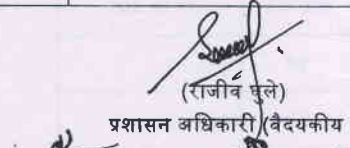 (राजीव घुले)
प्रशासन अधिकारी (वैदयकीय